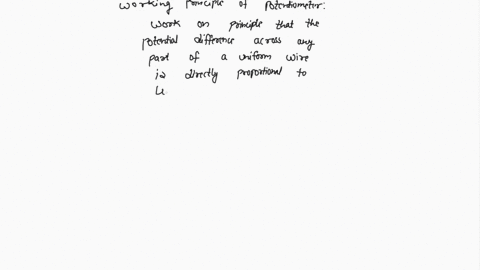 working principle of potentiometer:
work on principle that the
potential difference across any
part of a uniform wire
is directly proportional to